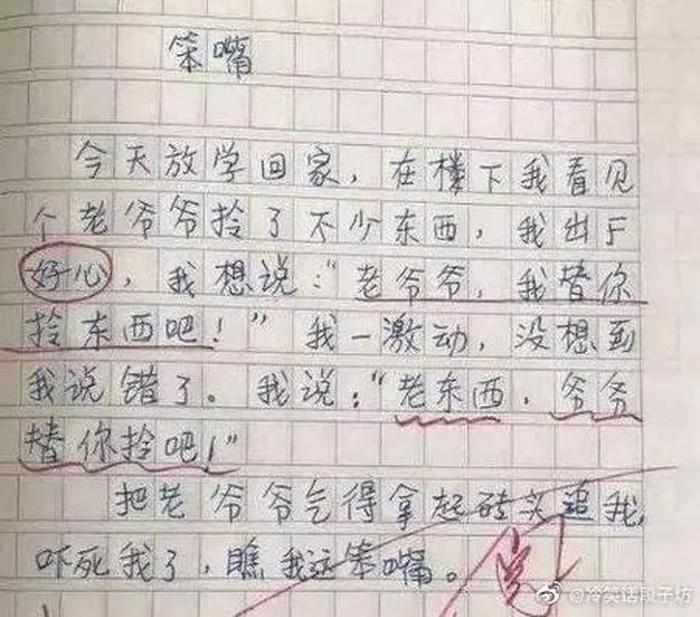 笨嘴
今天放学回家，在楼下我看见
个老爷爷拎了不少东西，我出于
好心，我想说：“老爷爷，我替你
拎东西吧！”我一激动，没想到
我说错了。我说：“老东西，爷爷
替你拎吧！”
把老爷爷气得拿起砖头追我，
吓死我了，瞧我这笨嘴。
@冷笑话段子坊